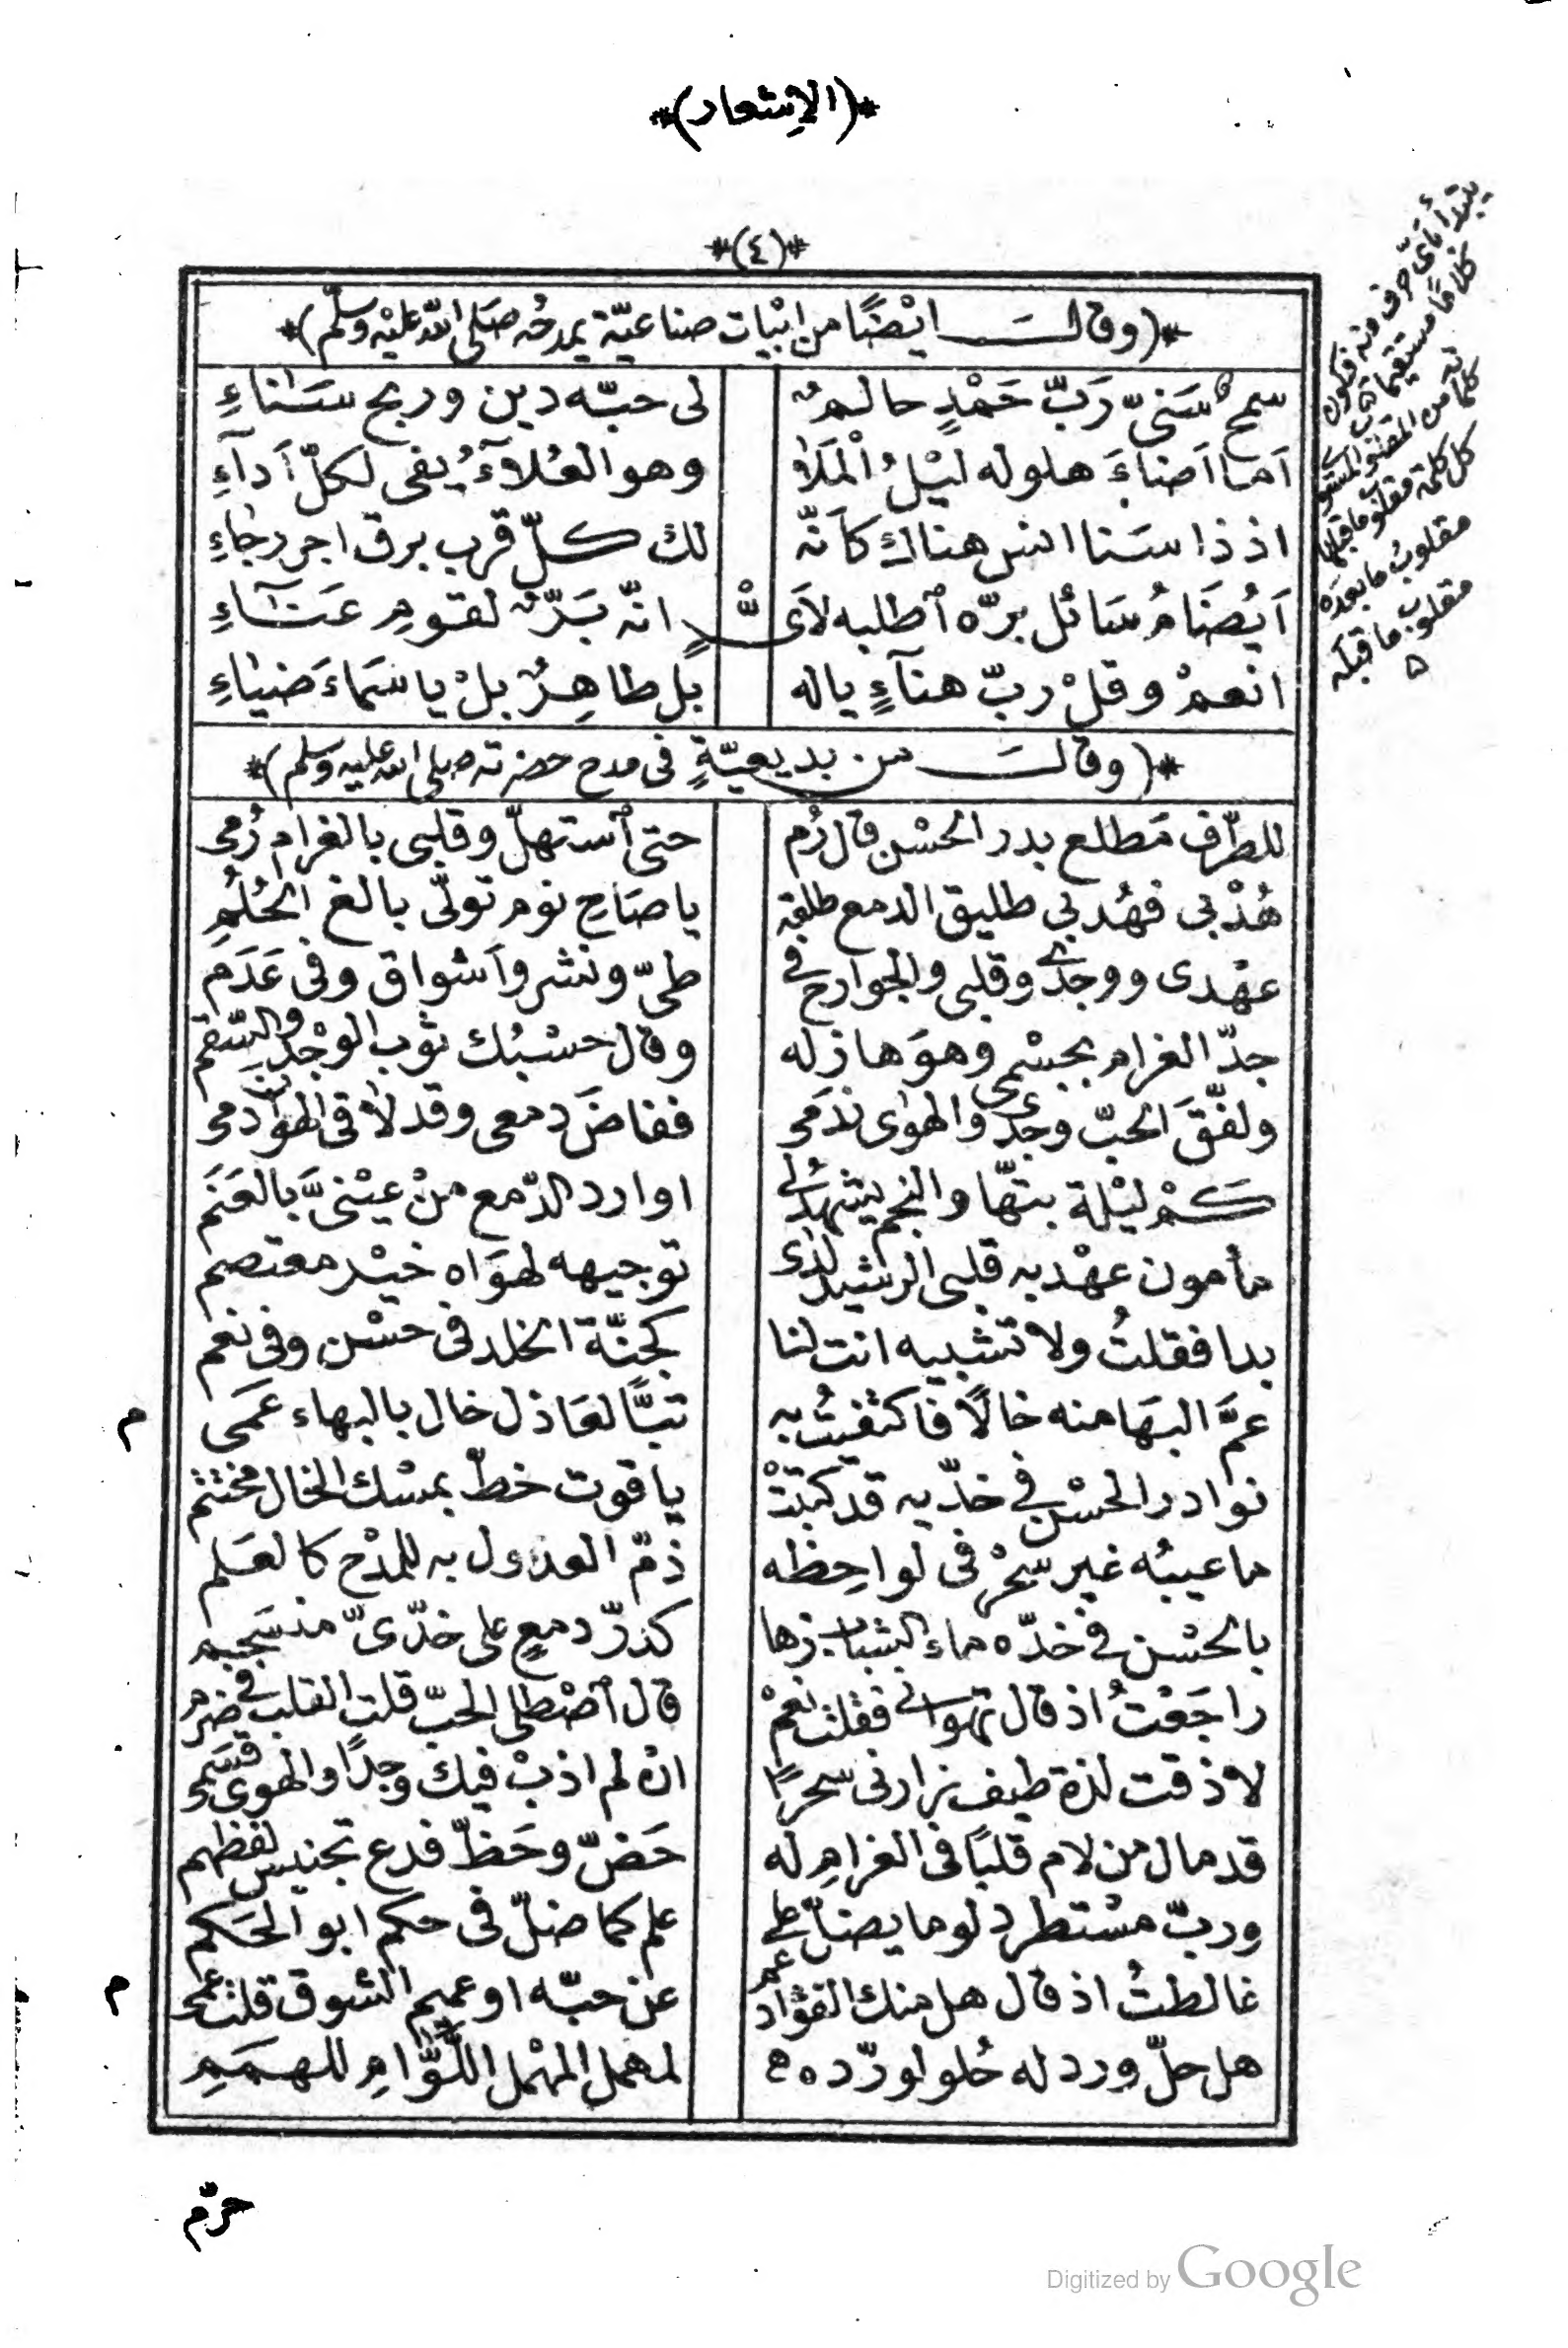 *(الإشعار)*
*(٤)*
*(وقالَ ايْضًا من ابْيات صناعيّة يمدحُه صَلى اللّه عليْه وسلّم)*
سمحٌ سَنىّ رَبّ حَمْدٍ حالمٌ لى حبّه دين وربح سَنٰاءِ
اَما اَضاءَ هلوله ليْلُ الْمَلَاٰ وهو العُلآءُ يفى لكلّ اَدآءِ
اذ ذا سَنا انس هناك كاَنّه لك كلّ قرب برق اجر رجٰاءِ
اَيُضَامُ سَائل برّه اَطلبه لاَىّ انّه بَرٌّ لقومِ عَنٰآءِ
انعمْ وقلْ ربّ هنآءٍ ياله بل طاهِرٌ بلْ ياسَماءَ ضيٰاءِ
*(وقالَ من بديعيّةٍ فى مدح حضرته صلى اللّه عليه وسلم)*
للطّرف مَطلع بدر الحسْن قال رُم حتى اَستهلّ وقلبى بالغرام رُمى
هُذْ بى فهُد بى طليق الدمع طلقه يا صَاحِ نوم تولّى بالغ الحُلُمِ
عهْدى ووجدى وقلبى والجوارح فى طىّ ونشر واَشواق وفى عَدَم
جدّ الغرام بجسْمى وهوَ هازله وقال حسْبُك ثوب الوجْد والسّقم
ولفّقَ الحبّ وجدى والهوٰى ندَمى ففاضَ دمعى وقد لاٰقى الهوٰان دمى
كمْ ليْلة بتّها والنجم يشهدُ لى اوارد الدّمع منْ عيْنىَّ بالعَنَم
مأمون عهْد به قلبى الرشيد لدٰى توجيهه لهوَاه خيْر معتصم
بدا فقلتُ ولا تشبيه انت لنا كجنّة الخلد فى حسْن وفى نعم
عمَّ البهَا منه خالًا فاكتفيتُ به تبًّا لعَاذل خال بالبهاء عَمَى
نوادر الحسْن فى خدّيه قد كتبَتْ ياقوت خطّ بمسْك الخال مختتم
ما عيبُه غير سحْر فى لواحِظه ذمّ العذول به للمدْح كالعَلم
بالحسْن فى خدّه ماء الشباب زها كدرّ دمعٍ على خدّىّ منسَجم
راجَعْتُ اذ قال تهوانى فقلت نعمْ قال اَصْطلى الحبّ قلت القلب فى ضرم
لا ذقت لذة طيف زارنى سحرًا ان لم اذبْ فيك وجدًا والهوٰى قسَمى
قد مال من لام قلبًا فى الغرامِ له حَضّ وحَظّ فدع تجنيس لفظهم
وربّ مسْتطرد لوما يضلّ على علم كما ضلّ فى حكم ابو الحَكم
غالطتُ اذ قال هل منك الفؤاد عم عن حبّه او عميم الشوق قلت عمى
هل حلّ ورد له حُلو لورّده لمهمل المهْمل اللَّوّامِ للهمَمِ
م
م
حرّم
يبتدأ بأىّ حرف منه فيكون
كلامًا مستقيما
كل كلمة
مقلوبُ ما بعدَه
مقلوب ما قبلَه
Digitized by Google